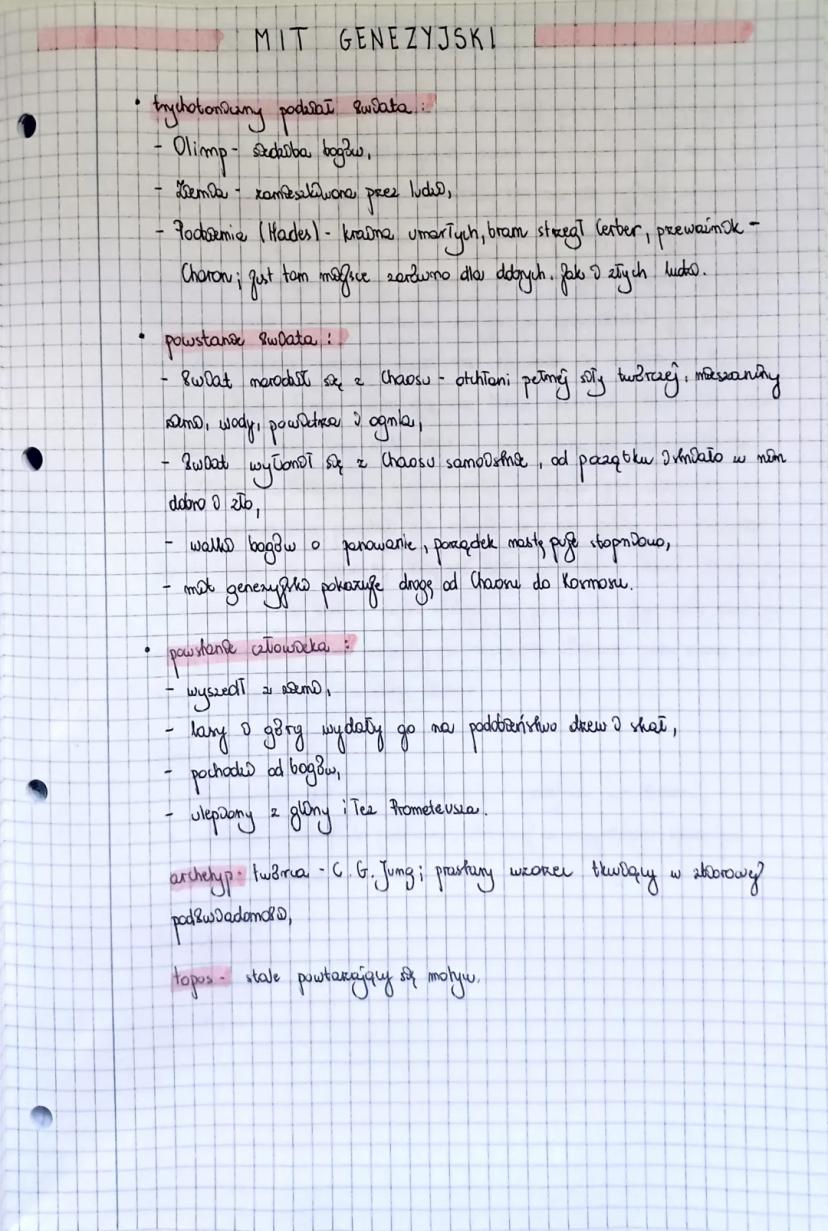 MIT GENEZYJSKI
• trychotomiczny podział świata :
- Olimp - siedziba bogów,
- Ziemia - zamieszkiwana przez ludzi,
- Podziemie (Hades) - kraina umarłych, bram strzegł Cerber, przewoźnik -
Charon; jest tam miejsce zarówno dla dobrych, jak i złych ludzi.
• powstanie świata :
- świat narodził się z Chaosu - otchłani pełnej siły twórczej, mieszaniny
ziemi, wody, powietrza i ognia,
- świat wyłonił się z Chaosu samoistnie, od początku istniało w nim
dobro i zło,
- walki bogów o panowanie, porządek następuje stopniowo,
- mit genezyjski pokazuje drogę od Chaosu do Kosmosu.
• powstanie człowieka :
- wyszedł z ziemi,
- lasy i góry wydały go na podobieństwo drzew i skał,
- pochodzi od bogów,
- ulepiony z gliny i łez Prometeusza.
archetyp - twórca - C. G. Jung; prastary wzorzec tkwiący w zbiorowej
podświadomości,
topos - stale powtarzający się motyw.